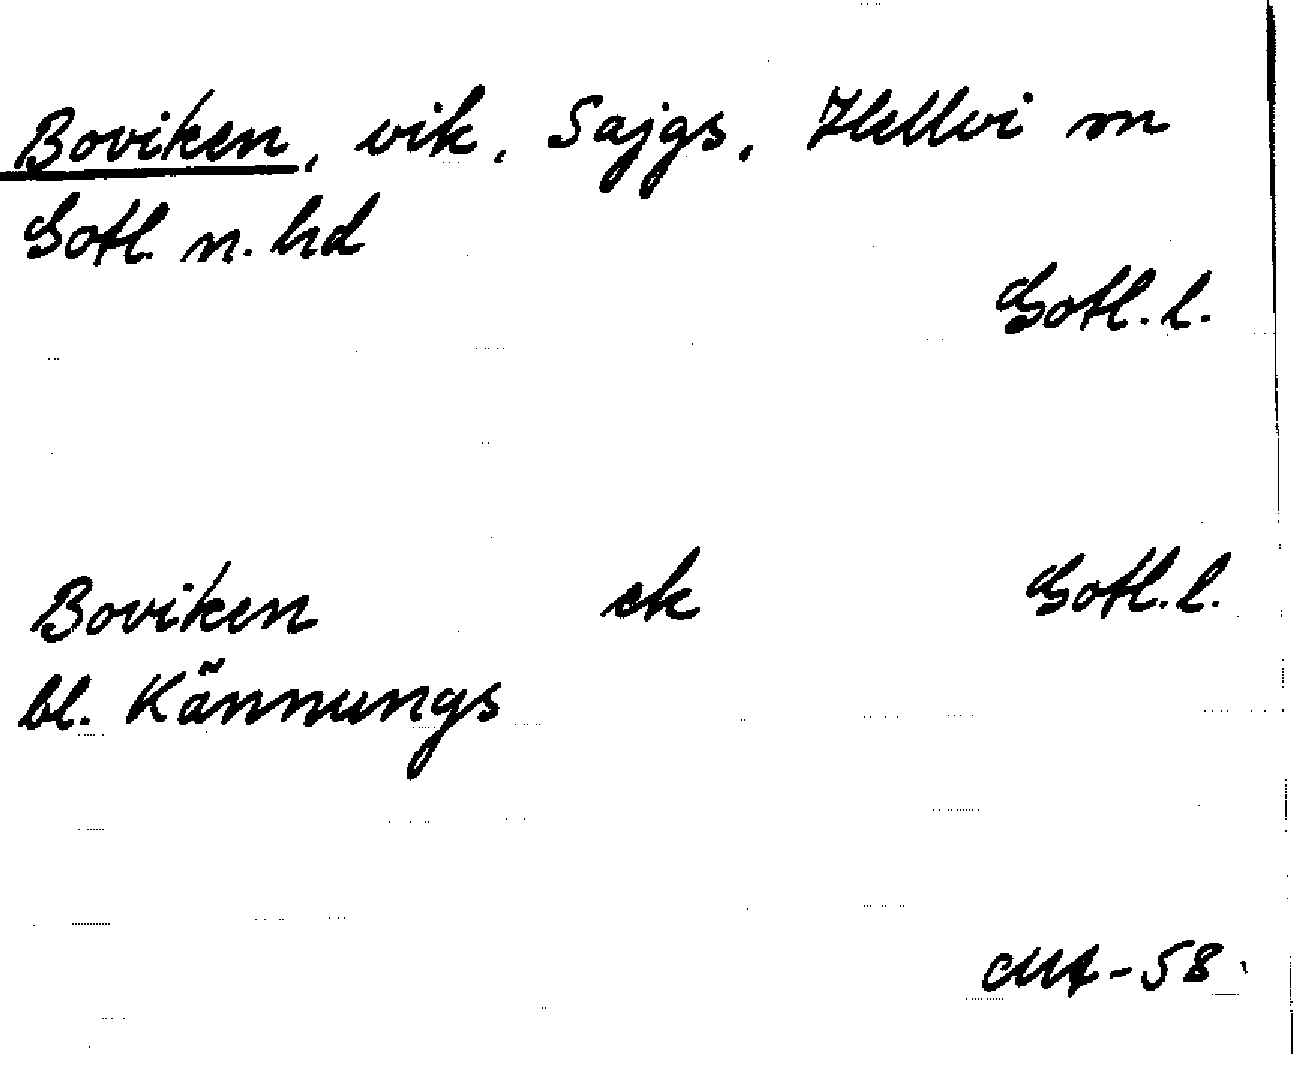 Boviken, vik, Sajgs, Hellvi sn
Gotl. n. hd
Gotl. l.
Boviken ek Gotl. l.
bl. Kännungs
-58